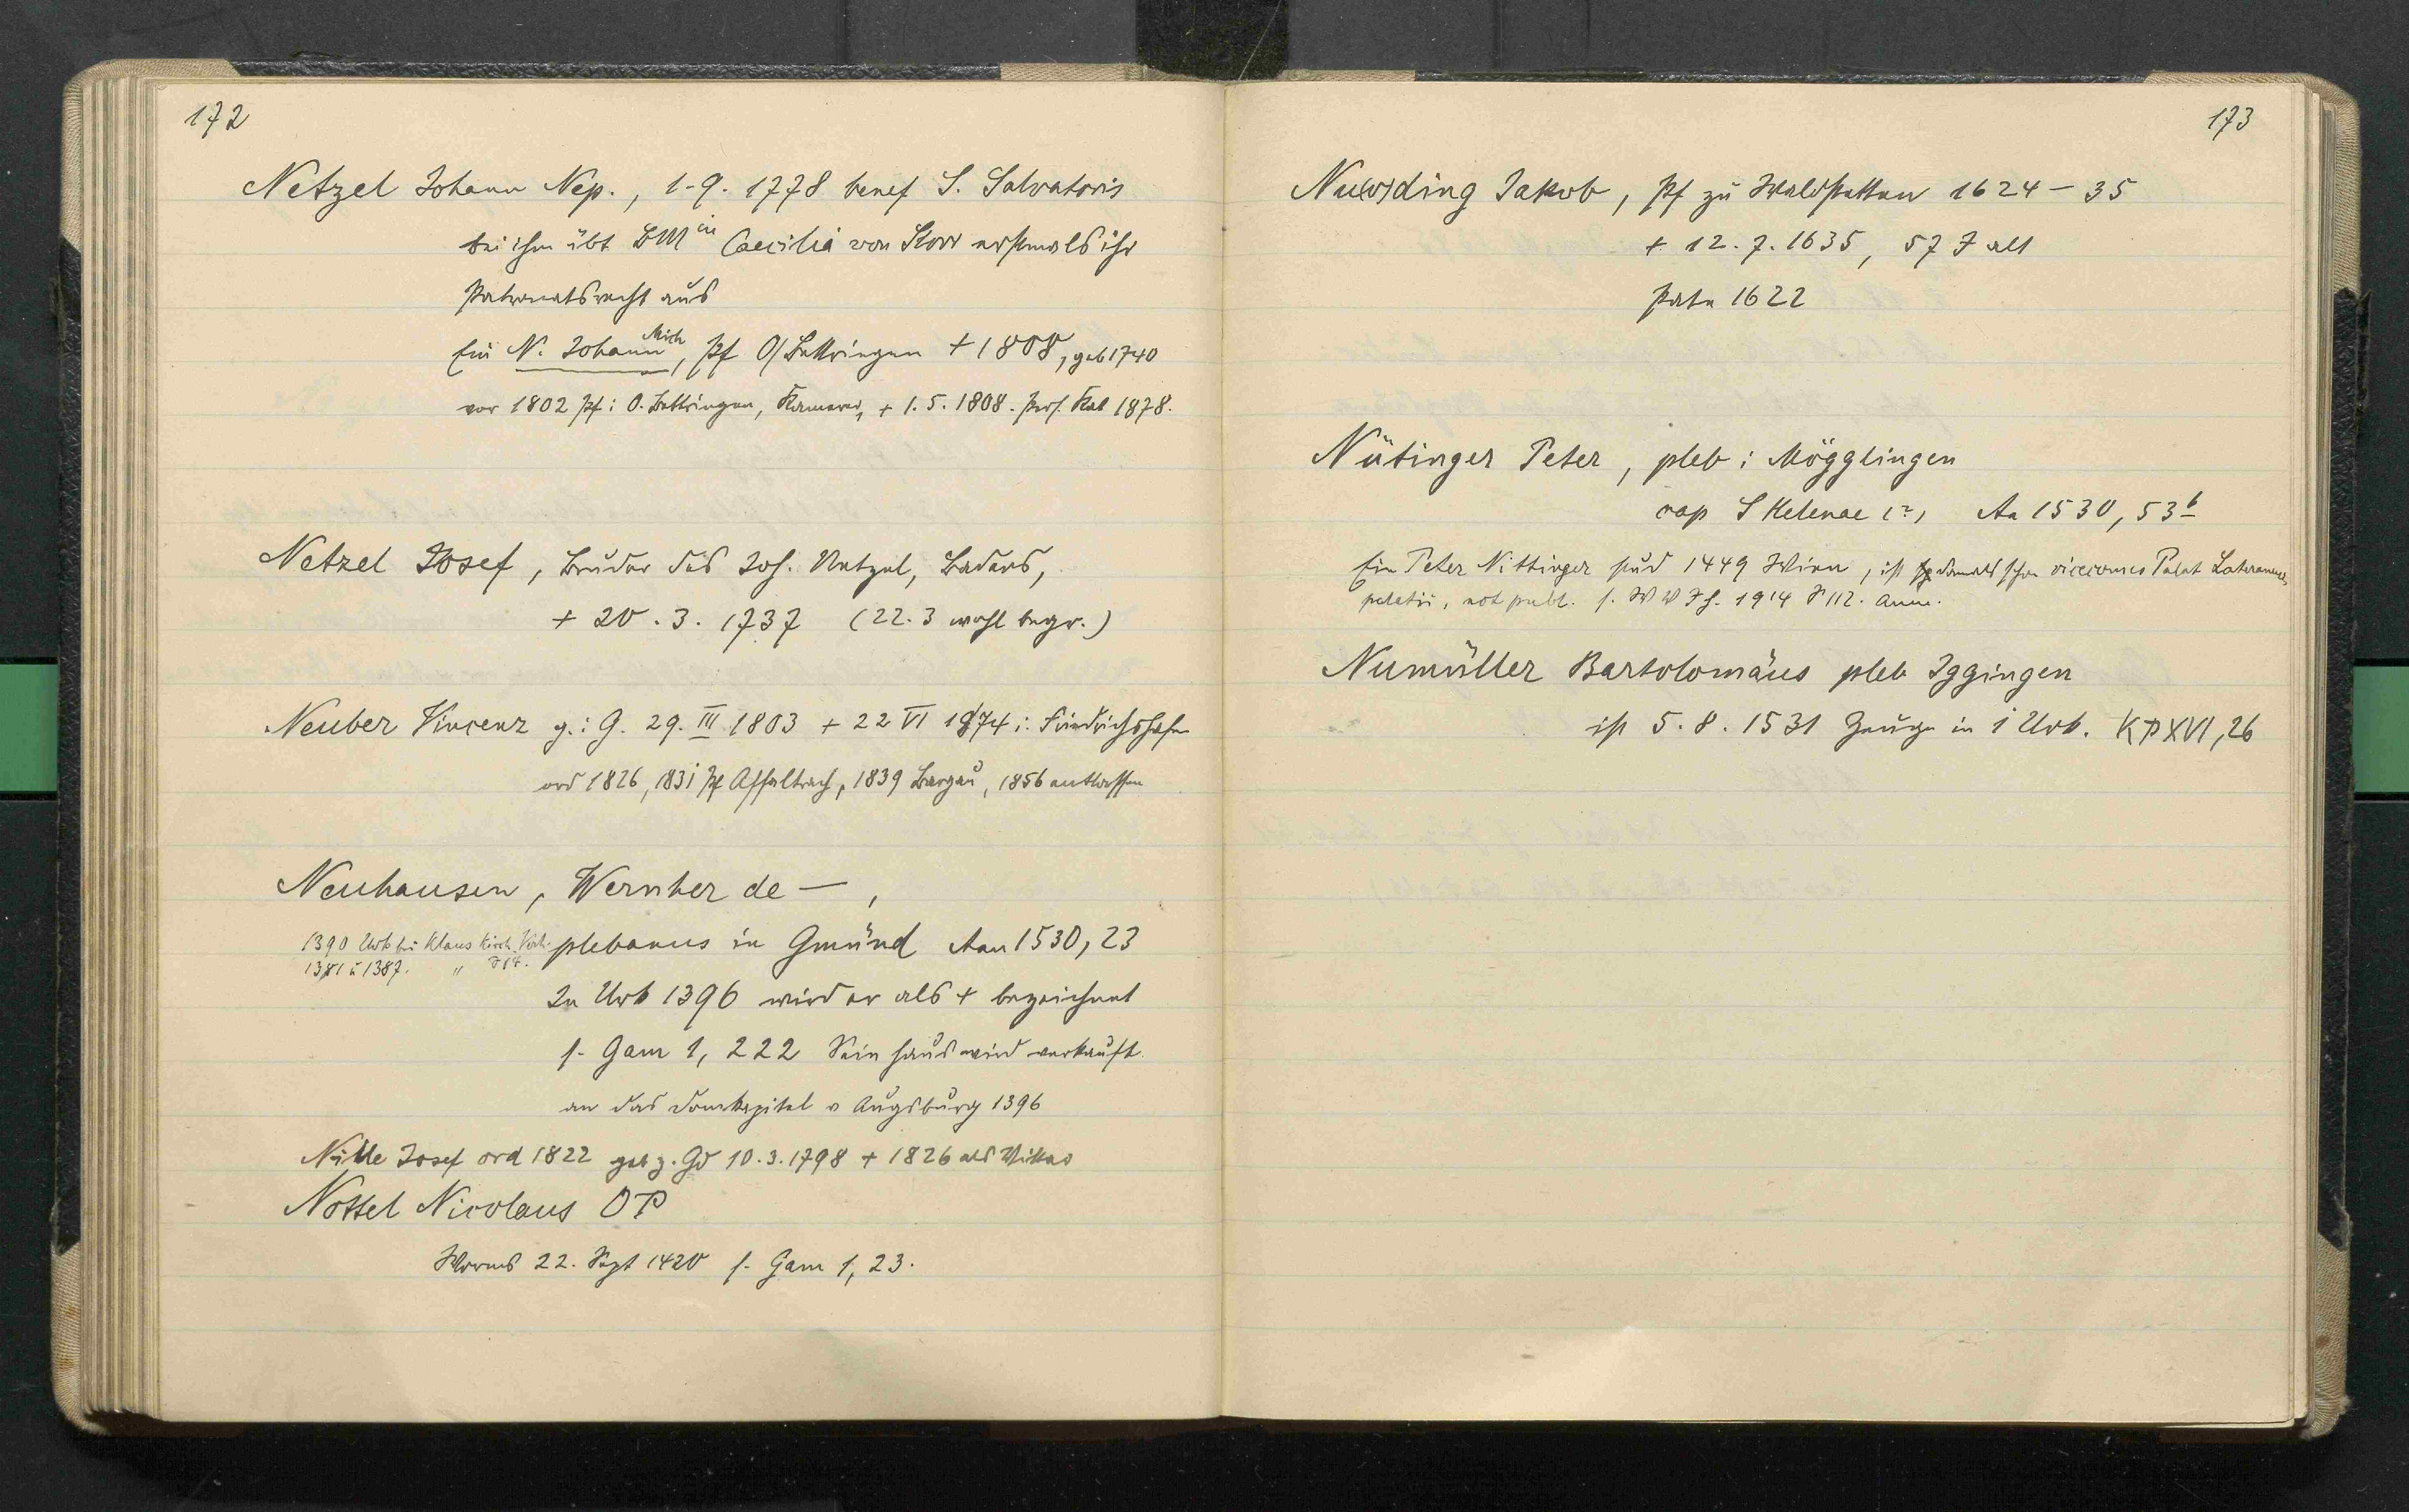 172
Netzel Johann Nep., 1-9. 1778 benef S. Salvatoris
bei ihm übt BMin Caecilia von Storr erstmals ihr
Patronatsrecht aus
Ein N. Johann Mich, Pf O/Bettringen + 1808, geb 1740
vor 1802 Pf i O. Bettringen, Kamerer, + 1. 5. 1808. Pers. Kat 1878.
Netzel Josef, Bruder des Joh. Netzel, Baders,
+ 20. 3. 1737 (22. 3 wohl begr.)
Neuber Vincenz g. i G. 29. III 1803 + 22 VI 1874 i. Friedrichshafen
ord 1826, 1831 Pf Affaltrach, 1839 Bargau, 1856 entlassen
Neuhausen, Wernher de —,
1390 Urk bei Klaus Kirch
plebanus in Gmünd Aan 1530, 23
1381 u 1387. "
In Urk 1396 wird er als + bezeichnet
s. Gam 1, 222 Sein Haus wird verkauft
an das Domkapitel v Augsburg 1396
Nille Josef ord 1822 geb z. Gd 10. 3. 1798 + 1826 als Vikar
Nottel Nicolaus OP
Worms 22. Sept 1420 s. Gam 1, 23.
173
Nu(o)ding Jakob, Pf zu Waldstetten 1624 – 35
+ 12. 7. 1635, 57 J alt
Pate 1622
Nütinger Peter, pleb i Mögglingen
cap S Helenae (?) Aa 1530, 53b
Ein Peter Nittinger stud 1449 Wien, ist damals schon vicecomes Palat Lateranens
palatii, not publ. s. W V J H. 1914 S 112. Anm.
Numüller Bartolomäus pleb Iggingen
ist 5. 8. 1531 Zeuge in 1 Urk. KPXVI, 26